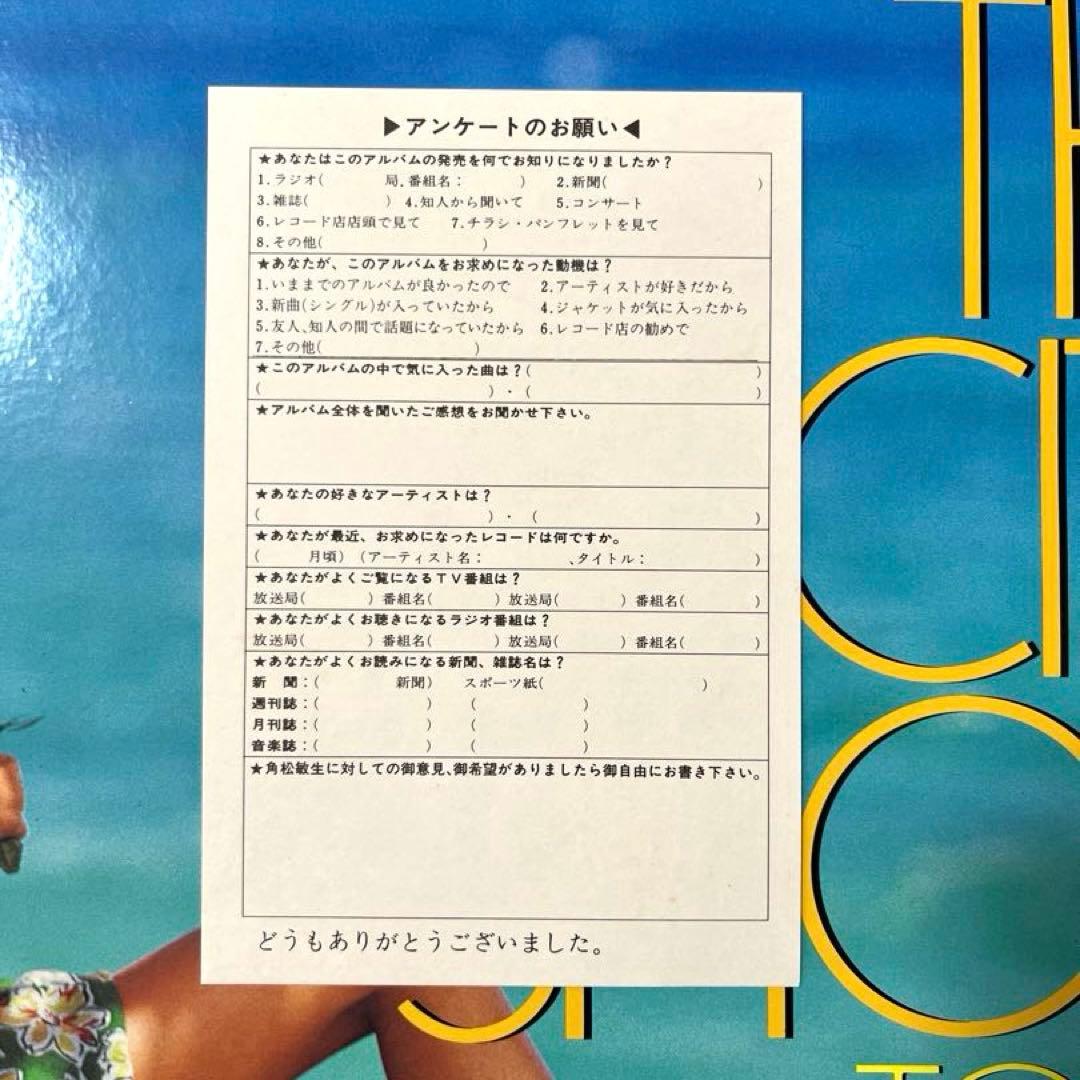 ▶アンケートのお願い◀
★あなたはこのアルバムの発売を何でお知りになりましたか？
1.ラジオ(　　　局.番組名：　　　)　2.新聞(　　　　　　　)
3.雑誌(　　　　)　4.知人から聞いて　5.コンサート
6.レコード店店頭で見て　7.チラシ・パンフレットを見て
8.その他(　　　　　　　　)
★あなたが、このアルバムをお求めになった動機は？
1.いままでのアルバムが良かったので　2.アーティストが好きだから
3.新曲(シングル)が入っていたから　4.ジャケットが気に入ったから
5.友人、知人の間で話題になっていたから　6.レコード店の勧めで
7.その他(　　　　　　　　)
★このアルバムの中で気に入った曲は？(　　　　　　　　　　　)
(　　　　　　　　　　　)・(　　　　　　　　　　　)
★アルバム全体を聞いたご感想をお聞かせ下さい。
★あなたの好きなアーティストは？
(　　　　　　　　　　　)・(　　　　　　　　　　　)
★あなたが最近、お求めになったレコードは何ですか。
(　　月頃)(アーティスト名：　　　　、タイトル：　　　　　)
★あなたがよくご覧になるTV番組は？
放送局(　　　)番組名(　　　)放送局(　　　)番組名(　　　)
★あなたがよくお聴きになるラジオ番組は？
放送局(　　　)番組名(　　　)放送局(　　　)番組名(　　　)
★あなたがよくお読みになる新聞、雑誌名は？
新　聞：(　　　　新聞)　スポーツ紙(　　　　　　　　)
週刊誌：(　　　　　)　(　　　　　)
月刊誌：(　　　　　)　(　　　　　)
音楽誌：(　　　　　)　(　　　　　)
★角松敏生に対しての御意見、御希望がありましたら御自由にお書き下さい。
どうもありがとうございました。